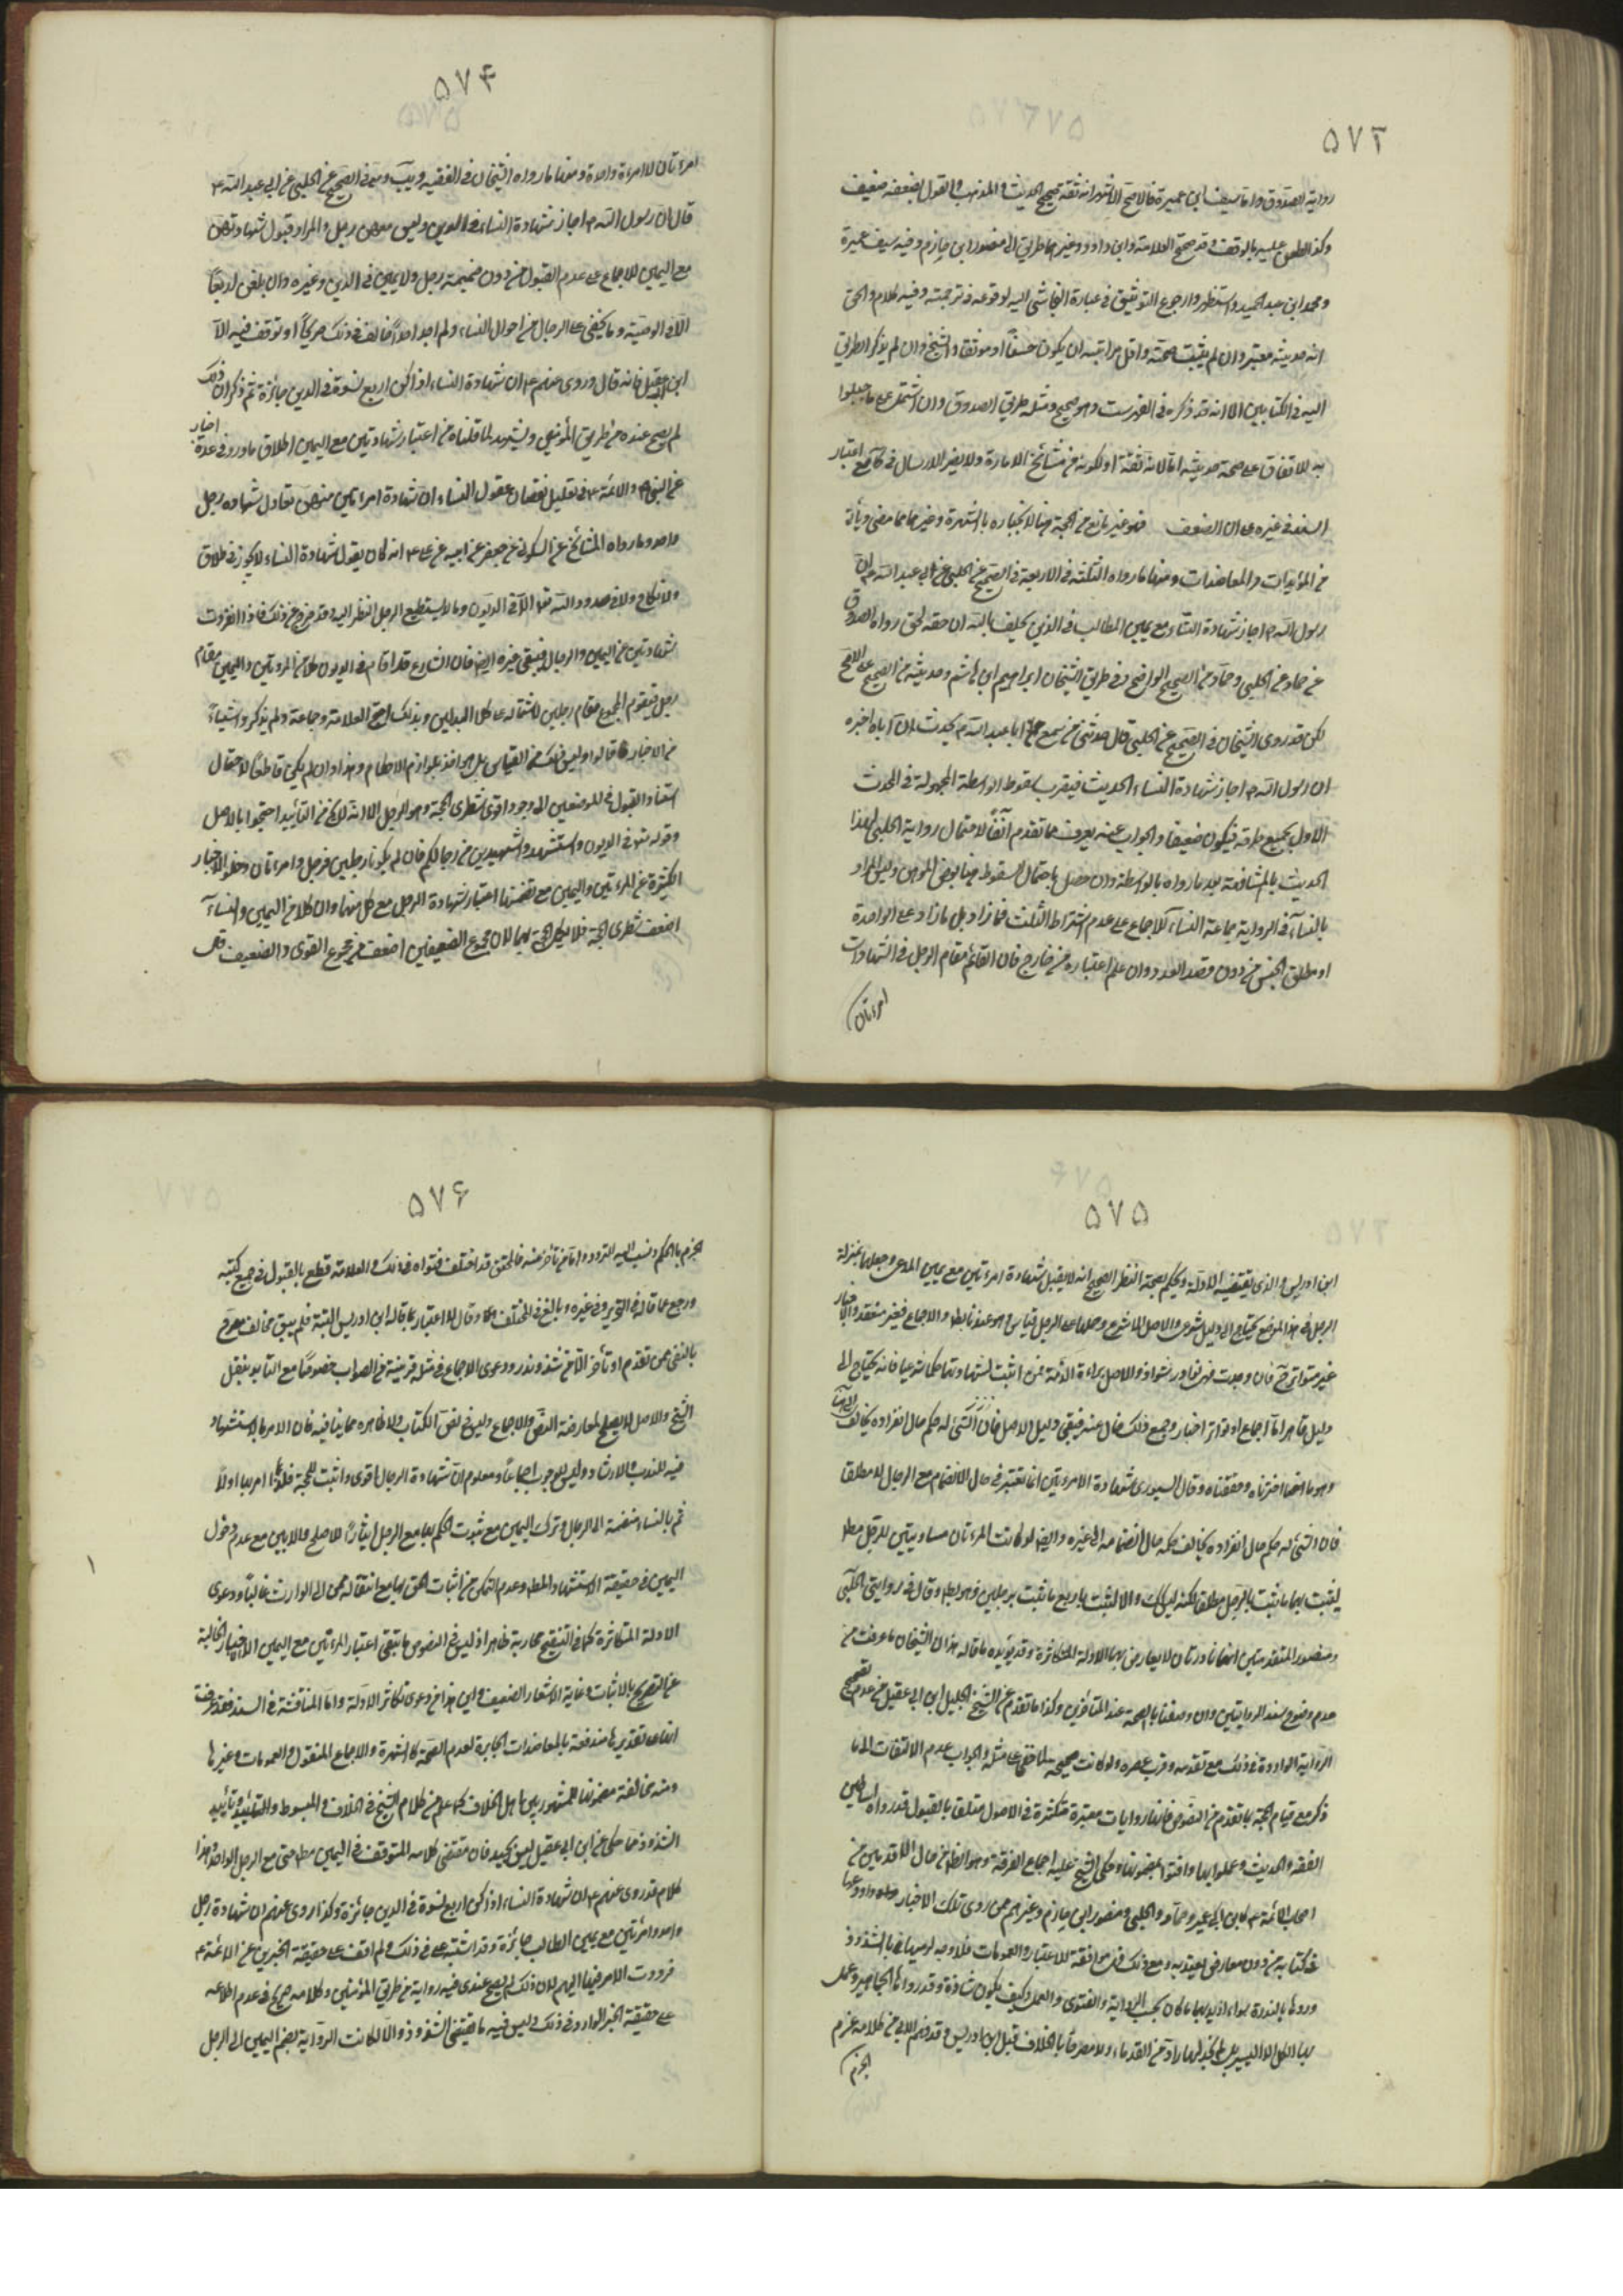 ۵۷۳
رواية الصدوق واما سيف ابن عميرة فالاصح الاشهر انه ثقة صحيح الحديث والمذهب والقول بضعفه ضعيف
وكذا الطعن عليه بالوقف وقد صحح العلامة وابن داود وغيرهما طريق الى منصور ابن حازم وفيه سيف عميرة
ومحمد ابن عبد الحميد واستظهروا رجوع التوثيق في عبارة النجاشي اليه لوقوعه في ترجمته وفيه كلام والحق
انه حديثه معتبر وان لم يثبت صحته واقل مراتبه ان يكون حسنا او موثقا والشيخ وان لم يذكر الطريق
اليه في الكتابين الا انه قد ذكره في الفهرست وهو صحيح ومثله طريق الصدوق وان اشتمل على ماجيلويه
للاتفاق على صحة حديثه اما لانه ثقة او لكونه من مشايخ الاجازة ولا يضر الارسال في مع اعتبار
السند في غيره على ان الضعف فهو غير مانع من الحجة هنا لانجباره بالشهرة وغيرها مما مضى ويأتي
من المؤيدات والمعاضدات ومنها ما رواه الثلثة في الاربعة في الصحيح عن الحلبي عن ابي عبد الله ع ان
رسول الله ص اجاز شهادة النساء مع يمين الطالب في الدين يحلف بالله ان حقه لحق رواه الصدوق
عن حماد عن الحلبي وحماد من الصحيح الواضح وفي طريق الشيخان ابراهيم ابن هاشم وحديثه من الصحيح على الاصح
لكن قد روى الشيخان في الصحيح عن الحلبي قال حدثني من سمع ابا عبد الله ع يحدث ان اباه اخبره
ان رسول الله ص اجاز شهادة النساء الحديث فيقرب سقوط الواسطة المجهولة في الحديث
الاول بجميع طرقه فيكون ضعيفا والجواب عنه يعرف مما تقدم آنفا لاحتمال رواية الحلبي لهذا
الحديث بالمشافهة بعد ما رواه بالواسطة وان حصل باحتمال السقوط هنا بعض الوهن وليس المراد
بالنساء في الرواية جماعة النساء للاجماع على عدم اشتراط الثلث فما زاد بل ما زاد على الواحدة
او مطلق الجنس من دون قصد العدد وان علم اعتباره من خارج فان القائم مقام الرجل في الشهادات
امرءتان
۵۷۴
امرءتان لا امراة واحدة ومنها ما رواه الشيخان في الفقيه في الصحيح عن الحلبي عن ابي عبد الله ع
قال ان رسول الله ص اجاز شهادة النساء في الدين وليس معهن رجل والمراد قبول شهادتهن
مع اليمين للاجماع على عدم القبول من دون ضميمة رجل ولا يمين في الدين وغيره وان بلغن اربعا
الا في الوصية وما يخفى على الرجال من احوال النساء ولم اجد احدا خالف في ذلك صريحا او توقف فيه الا
ابن ابي عقيل فانه قال وروى عنهم ع ان شهادة النساء اذا كن اربع نسوة في الدين جائزة ثم ذكر ان ذلك
لم يصح عنده من طريق المؤمنين ويشهد لما قلناه من اعتبار شهادتين مع اليمين اطلاق ما ورد في عدة اخبار
عن النبي ص والائمة ع في تعليل نقصان عقول النساء ان شهادة امرءتين منهن تعادل شهادة رجل
واحد وما رواه المشايخ عن السكوني عن جعفر عن ابيه عن علي ع انه كان يقول شهادة النساء لا يجوز في طلاق
ولا نكاح ولا في حدود الله تعالى الا في الديون وما لا يستطيع الرجل النظر اليه وقد خرج من ذلك ما اذا انفردت
شهادتهن عن اليمين والرجال فيبقى غيره ايضا فان الشارع قد اقام في الديون كلا من المرءتين واليمين مقام
رجل فيقوم المجموع مقام رجلين لاشتماله على كلا البدلين وبذلك احتج العلامة وجماعة ولم يذكروا شيئا
من الاخبار قالوا وليس ذلك من القياس بل هو اخذ بلوازم الاحكام وهذا وان لم يكن قاطعا لاحتمال
استناد القبول في الموضعين الى وجود اقوى شطري الحجة وهو الرجل الا انه لا يخلو من التأييد احتجوا بالاصل
وقوله تعالى في الديون واستشهدوا شهيدين من رجالكم فان لم يكونا رجلين فرجل وامرءتان وخلو الاخبار
الكثيرة عن المرءتين واليمين مع تضمنها اعتبار شهادة الرجل مع كل منهما وان كلا من اليمين والنساء
اضعف شطري الحجة فلا يكمل الحجة بهما لان مجموع الضعيفين اضعف من مجموع القوى والضعيف قال
۵۷۵
ابن ادريس والذي يقتضيه الادلة ويحكم بصحة النظر الصحيح انه لا يقبل شهادة امرءتين مع يمين المدعي وجعلها بمنزلة
الرجل في هذا الموضع يحتاج الى دليل شرعي والاصل الا شرع وحملها على الرجل قياس وهو عندنا باطل والاجماع فغير منعقد والاخبار
غير متواترة فان وجدت فهي نوادر شواذ والاصل براءة الذمة فمن اثبت بشهادتهما حكما شرعيا فانه يحتاج الى
دليل قاهر اما اجماع او تواتر اخبار وجميع ذلك خال عنه فبقي دليل الاصل فان الشئ له حكم حال انفراده يخالف
وهو ما اخترناه وحققناه وقال السيوري شهادة الامرءتين انما تعتبر في حال الانضمام مع الرجال لا مطلقا
فان الشئ له حكم حال انفراده يخالف حكمه حال انضمامه الى غيره وايضا لو كانت المرءتان مساويتين للرجل مطلقا
لثبت بهما ما يثبت بالرجل مطلقا لكنه ليس كذلك والا لثبت باربع ما ثبت برجلين وهو باطل وقال في روايتي الحلبي
ومنصور المتقدمتين انهما نادرتان لا يعارض بهما الادلة المتكاثرة وقد يؤيده ما قاله هذان الشيخان ما عرفت من
عدم وضوح سند الروايتين وان وصفتا بالصحة عند المتأخرين وكذا ما تقدم عن الشيخ الجليل ابن ابي عقيل من عدم تصحيح
الرواية الواردة في ذلك مع تقدمه وقرب عصره ولو كانت صحيحة لما خفي على مثله والجواب عدم الالتفات الى ما
ذكر مع قيام الحجة بما تقدم من النصوص فانها روايات معتبرة متكثرة في الاصول متلقاة بالقبول قد رواه اساطين
الفقه والحديث وعملوا بها وافتوا بمضمونها وحكى الشيخ عليه اجماع الفرقة وهو الظاهر من حال الاقدمين من
اصحاب الائمة ع كابن ابي عمير وحماد والحلبي ومنصور ابن حازم وغيرهم ممن روى تلك الاخبار
في كتابه من دون معارض يعتد به ومع ذلك فهي موافقة للاعتبار والعمومات فلا وجه لرميها بالشذوذ
وردها بالندرة سواء اريد بهما ما كان بحسب الرواية والفتوى والعمل وكيف يكون شاذة وقد رواها الجماهير وعمل
بها الكل الا اليسير بل لم نجد لها رادا من القدماء ولا مصرحا بالخلاف قبل ابن ادريس وقد فهم الابي من كلامه عزم
الجزم
۵۷۶
الجزم بالحكم ونسب اليه التردد واما من تأخر عنه فالمحقق قد اختلف فتواه في ذلك والعلامة قطع بالقبول في جميع كتبه
ورجع عما قاله في التحرير وفي غيره وبالغ في المختلف وقال لا اعتبار بما قاله ابن ادريس البتة فلم يبق مخالف مصرح
بالنفي ممن تقدم او تأخر الا من شذ وندر ودعوى الاجماع في مثله قريبة من الصواب خصوصا مع التأييد بنقل
الشيخ والاصل لا يصلح لمعارضة النص والاجماع وليس في نص الكتاب ولا ظاهره مما ينافيه فان الامر بالاستشهاد
فيه للندب والارشاد وليس للوجوب اجماعا ومعلوم ان شهادة الرجال اقوى واثبت للحجة فلذا امر بها اولا
ثم بالنساء منضمة الى الرجال وترك اليمين مع ثبوت الحكم بها مع الرجل ايثارا للاصلح والابين مع عدم دخول
اليمين في حقيقة الاستشهاد المطلوب وعدم التمكن من اثبات الحق بها مع انتقاله الى الوارث غالبا ودعوى
الادلة المتكاثرة كما في التنقيح محاربة ظاهرا اذ ليس في النصوص ما ينفي اعتبار المرءتين مع اليمين الا الاخبار الخالية
عن التصريح بالاثبات وغاية الاشعار الضعيف واين هذا من دعوى تكاثر الادلة واما المناقشة في السند فقد عرفت
انها على تقديرها مندفعة بالمعاضدات الجابرة لعدم الصحة كالشهرة والاجماع المنقول والعمومات وغيرها
ومنه مخالفة مضمونها للمشهور بين اهل الخلاف كما علم من كلام الشيخ في الخلاف والمبسوط وتأييد
الشذوذ مما حكى عن ابن ابي عقيل ليس بجيد فان مقتضى كلامه التوقف في اليمين مطلقا حتى مع الرجل الواحد وهذا
كلام قد روى عنهم ع ان شهادة النساء اذا كن اربع نسوة في الدين جائزة وكذا روى عنهم ان شهادة رجل
واحد وامرئتين مع يمين الطالب جائزة وقد اشتبه على في ذلك ولم اقف على حقيقة الخبرين عن الائمة ع
فرددت الامر فيهما اليهم لان ذلك لم يصح عندي فيه رواية من طريق المؤمنين وكلامه صريح في عدم اطلاعه
على حقيقة الخبر الوارد في ذلك وليس فيه ما يقتضي الشذوذ والا لكانت الرواية بضم اليمين الى الرجل